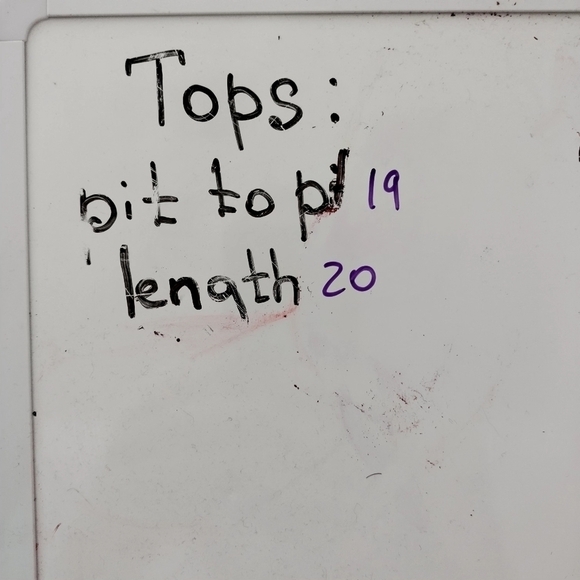 Tops:
pit to pit 19
length 20